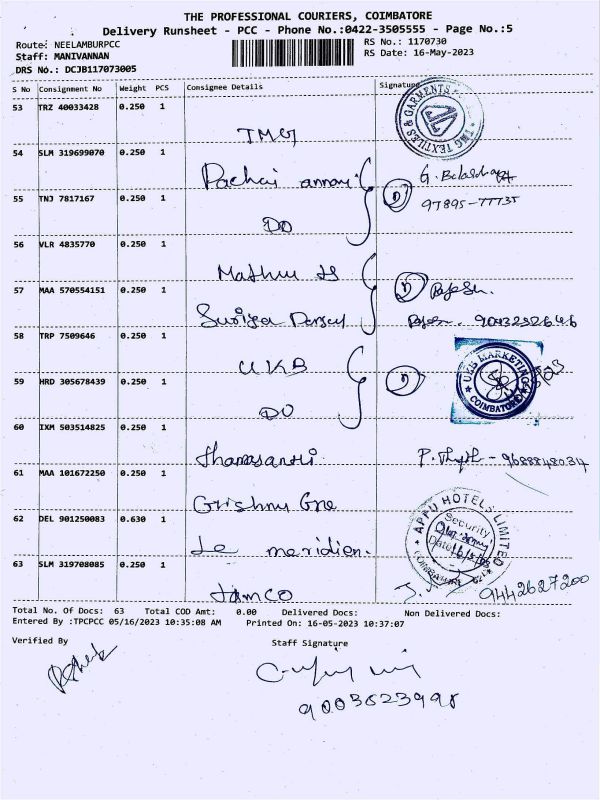 THE PROFESSIONAL COURIERS, COIMBATORE
Delivery Runsheet - PCC - Phone No.:0422-3505555 - Page No.:5
Route: NEELAMBURPCC
RS No.: 1170730
Staff: MANIVANNAN
RS Date: 16-May-2023
DRS No.: DCJB117073005
S No Consignment No Weight PCS Consignee Details Signature
53 TRZ 40033428 0.250 1
TMG
TMG TEXTILES & GARMENTS
54 SLM 319699070 0.250 1
Pachai
G.
55 TNJ 7817167 0.250 1
DO
97895-77735
56 VLR 4835770 0.250 1
57 MAA 570554151 0.250 1
58 TRP 7509646 0.250 1
UKB
UKB MARKETING
COIMBATORE
59 HRD 305678439 0.250 1
DO
60 IXM 503514825 0.250 1
P. - 9688848034
61 MAA 101672250 0.250 1
62 DEL 901250083 0.630 1
Le meridien.
APPU HOTELS LIMITED
Security
Date 16/5/23
63 SLM 319708085 0.250 1
Jamco
9442627200
Total No. Of Docs: 63 Total COD Amt: 0.00 Delivered Docs: Non Delivered Docs:
Entered By :TPCPCC 05/16/2023 10:35:08 AM Printed On: 16-05-2023 10:37:07
Verified By
Staff Signature
9003623998